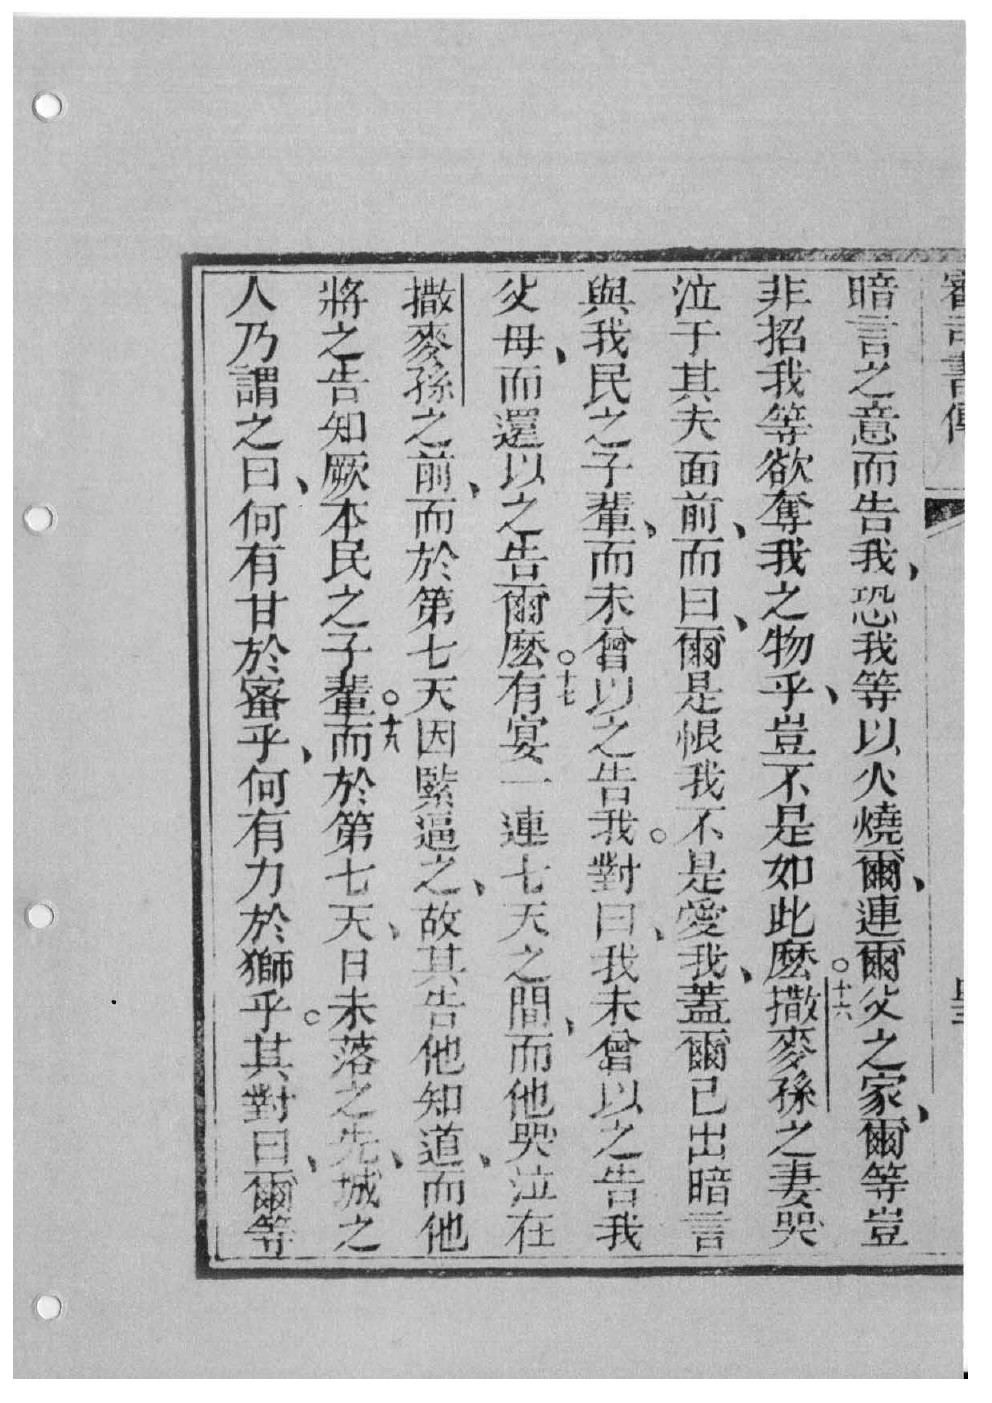 審司書傳
暗言之意而告我、恐我等以火燒爾、連爾父之家、爾等豈
非招我等欲奪我之物乎、豈不是如此麽。十六撒麥孫之妻哭
泣于其夫面前、而曰、爾是恨我不是愛我、蓋爾已出暗言
與我民之子輩、而未曾以之告我。對曰、我未曾以之告我
父母、而還以之告爾麽。十七有宴一連七天之間、而他哭泣在
撒麥孫之前、而於第七天因緊逼之、故其告他知道、而他
將之告知厥本民之子輩。十九而於第七天、日未落之先、城之
人乃謂之曰、何有甘於蜜乎、何有力於獅乎。其對曰、爾等